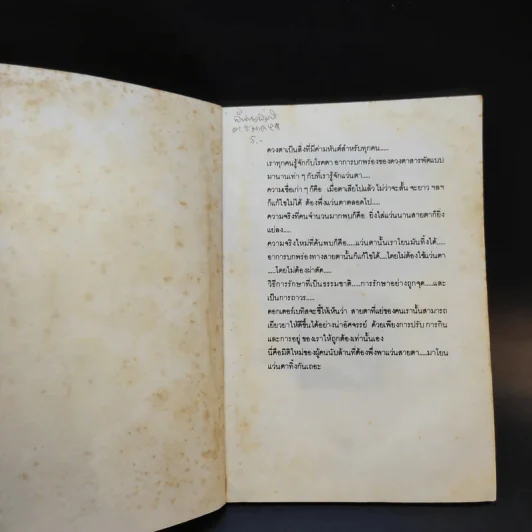 ดวงตาเป็นสิ่งที่มีค่ามหันต์สำหรับทุกคน.....
เราทุกคนรู้จักกับโรคตา อาการบกพร่องของดวงตาสารพัดแบบ
มานานเท่า ๆ กับที่เรารู้จักแว่นตา....
ความเชื่อเก่า ๆ ก็คือ เมื่อตาเสียไปแล้ว ไม่ว่าจะสั้น จะยาว ฯลฯ
ก็แก้ไขไม่ได้ ต้องพึ่งแว่นตาตลอดไป.....
ความจริงที่คนจำนวนมากพบก็คือ ยิ่งใส่แว่นนานสายตาก็ยิ่ง
แย่ลง.....
ความจริงใหม่ที่ค้นพบก็คือ.....แว่นตานั้นเราโยนมันทิ้งได้.....
อาการบกพร่องทางสายตานั้นก็แก้ไขได้.....โดยไม่ต้องใช้แว่นตา
.....โดยไม่ต้องผ่าตัด.....
วิธีการรักษาที่เป็นธรรมชาติ.....การรักษาอย่างถูกจุด.....และ
เป็นการถาวร.....
ดอกเตอร์เบทิสจะชี้ให้เห็นว่า สายตาที่แย่ของคนเรานั้นสามารถ
เยียวยาให้ดีขึ้นได้อย่างน่าอัศจรรย์ ด้วยเพียงการปรับ การกิน
และการอยู่ ของเราให้ถูกต้องเท่านั้นเอง
นี่คือมิติใหม่ของผู้คนนับล้านที่ต้องพึ่งพาแว่นสายตา.....มาโยน
แว่นตาทิ้งกันเถอะ